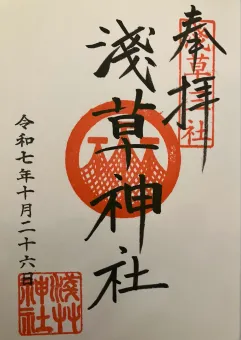 奉拝
淺草社
淺草神社
令和七年十月二十六日
淺草神社